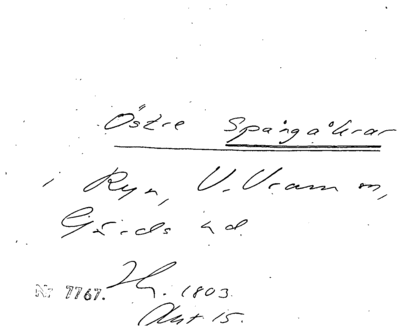 Östre Spångåkrar
i Ryn, V. Vram sn,
Gärds hd.
Nr 7767. Lm. 1803.
Akt 15.